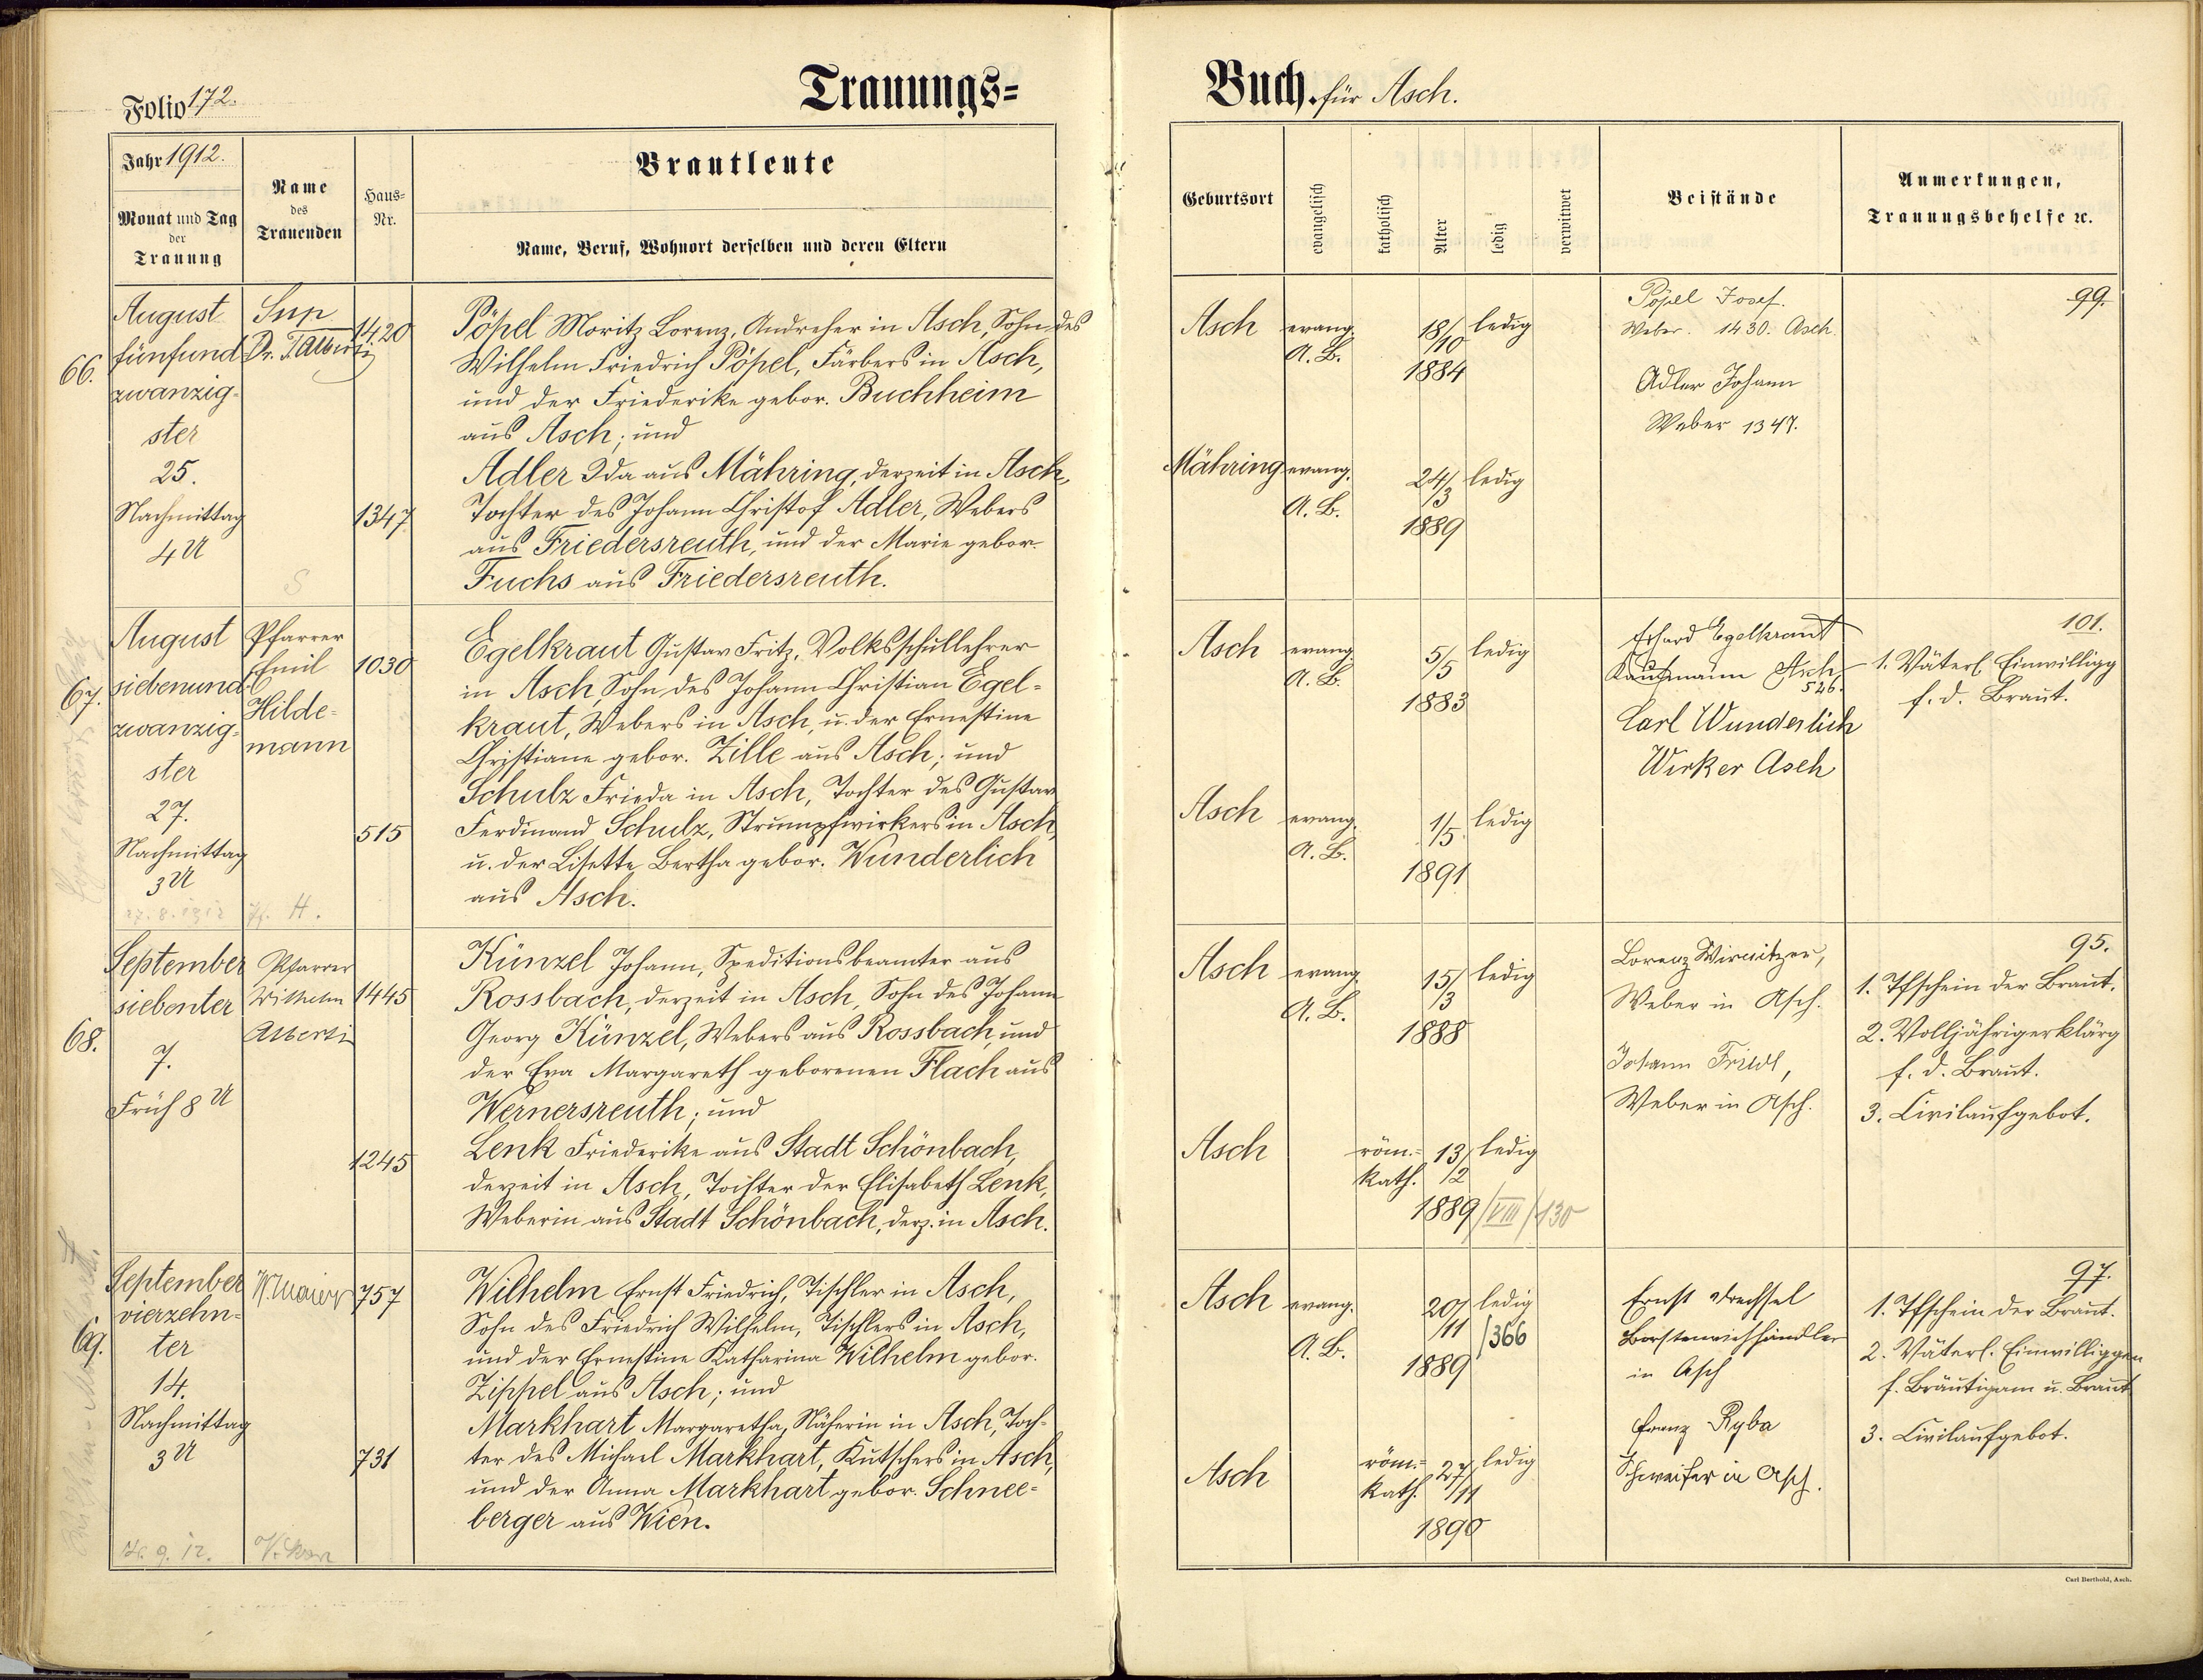 Folio 172.
Trauungs=
Buch für Asch.
Jahr 1912.
Monat und Tag
der
Trauung
Name
des
Trauenden
Haus-
Nr.
Brautleute
Name, Beruf, Wohnort derselben und deren Eltern
Geburtsort
evangelisch
katholisch
Alter
ledig
verwitwet
Beistände
Anmerkungen,
Trauungsbehelfe ꝛc.
66.
August
fünfund
zwanzig-
ster
25.
Nachmittag
4 U
Sup
Dr. T. Alberti
S
1420
1347
Pöpel Moritz Lorenz, Andreher in Asch, Sohn des
Wilhelm Friedrich Pöpel, Färbers in Asch,
und der Friederike gebor. Buchheim
aus Asch; und
Adler Ida aus Mähring, derzeit in Asch,
Tochter des Johann Christof Adler, Webers
aus Friedersreuth, und der Marie gebor.
Fuchs aus Friedersreuth.
Asch
evang.
A. B.
18/10
1884
ledig
Mähring
evang.
A. B.
24/3
1889
ledig
Pöpel Josef.
Weber. 1430. Asch.
Adler Johann
Weber 1347.
99.
67.
August
siebenund-
zwanzig-
ster
27.
Nachmittag
3 U
27. 8. 1912
Pfarrer
Emil
Hilde-
mann
Pf. H.
1030
515
Egelkraut Gustav Fritz, Volksschullehrer
in Asch, Sohn des Johann Christian Egel=
kraut, Webers in Asch, u. der Ernestine
Christiane gebor. Zille aus Asch; und
Schulz Frieda in Asch, Tochter des Gustav
Ferdinand Schulz, Strumpfwirkers in Asch,
u. der Lisette Bertha gebor. Wunderlich
aus Asch.
Asch
evang.
A. B.
5/5
1883
ledig
Asch
evang.
A. B.
1/5
1891
ledig
Erhard Egelkraut
Kaufmann Asch,
526.
Carl Wunderlich
Wirker Asch
101.
1. Väterl. Einwilligg
f. d. Braut.
68.
September
siebenter
7.
Früh 8 U
Pfarrer
Wilhelm
Alberti
1445
1245
Künzel Johann, Speditionsbeamter aus
Rossbach, derzeit in Asch, Sohn des Johann
Georg Künzel, Webers aus Rossbach, und
der Eva Margareth geborenen Flach aus
Wernersreuth; und
Lenk Friederike aus Stadt Schönbach,
derzeit in Asch, Tochter der Elisabeth Lenk,
Weberin aus Stadt Schönbach, derz. in Asch.
Asch
evang.
A. B.
15/3
1888
ledig
Asch
röm.-
kath.
13/2
1889
ledig
/VIII/130
Lorenz Wirnitzer,
Weber in Asch.
Johann Friedl,
Weber in Asch.
95.
1. Tfschein der Braut.
2. Volljährigerklärg
f. d. Braut.
3. Civilaufgebot.
69.
September
vierzehn-
ter
14.
Nachmittag
3 U
14. 9. 12.
W. Maier
Vikar
757
731
Wilhelm Ernst Friedrich, Tischler in Asch,
Sohn des Friedrich Wilhelm, Tischlers in Asch,
und der Ernestine Katharina Wilhelm gebor.
Zippel aus Asch; und
Markhart Margaretha, Näherin in Asch, Toch-
ter des Michael Markhart, Kutschers in Asch,
und der Anna Markhart gebor. Schnee-
berger aus Wien.
Asch
evang.
A. B.
20/11
1889
ledig
/366
Asch
röm.-
kath.
27/11
1890
ledig
Ernst Drechsel
Borstenviehhändler
in Asch
Franz Ryba
Schweifer in Asch.
97.
1. Tfschein der Braut.
2. Väterl. Einwilliggen
f. Bräutigam u. Braut
3. Civilaufgebot.
Carl Berthold, Asch.